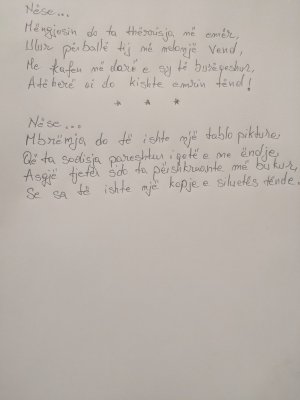 Nëse...
Mëngjesin do ta thërrisja në emër,
Ulur përballë tij në ndonjë vend,
Me kafen në dorë e sy të buzëqeshur,
Atëherë ai do kishte emrin tënd!
* * *
Nëse...
Mbrëmja do të ishte një tablo pikture,
Që ta sodisja pareshtur i gotë e me ëndje,
Asgjë tjetër s'do ta përshkruante më bukur,
Se sa të ishte një kopje e siluetës tënde.